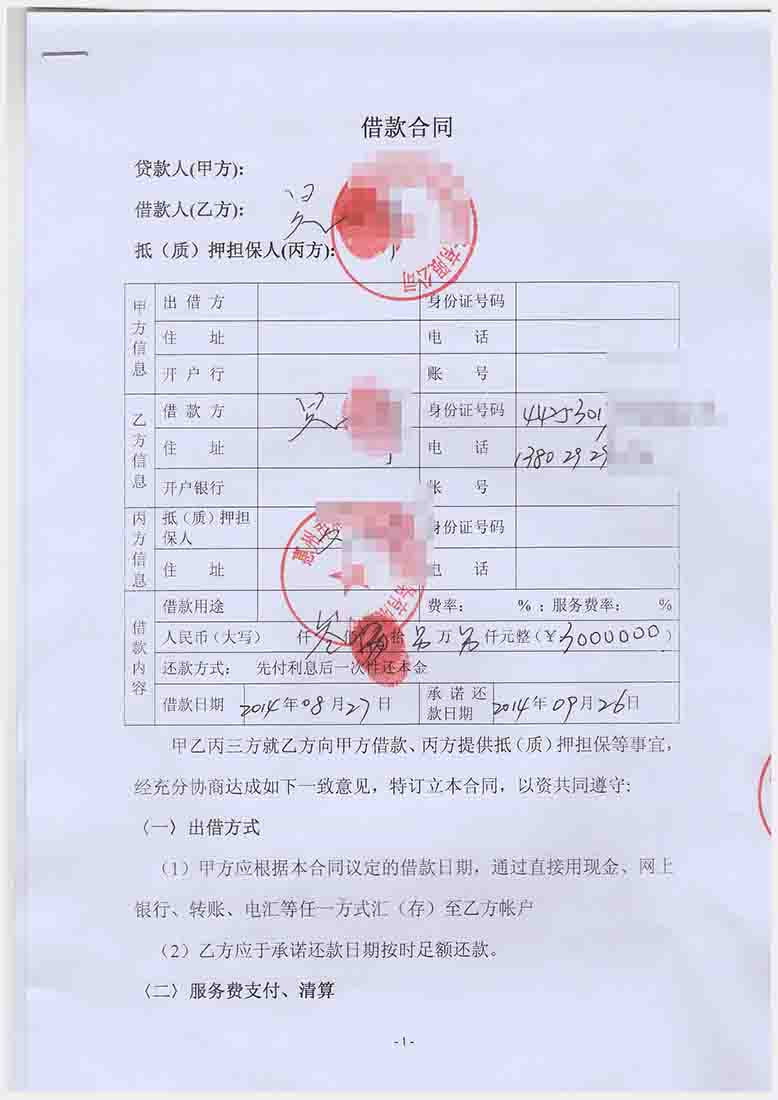 借款合同
贷款人(甲方):
借款人(乙方): 吴
抵（质）押担保人(丙方):
有限公司
甲方信息
出借方 身份证号码
住 址 电 话
开户行 账 号
乙方信息
借款方 吴 身份证号码 4425301
住 址 电 话 13802929
开户银行 帐 号
丙方信息
抵（质）押担保人 身份证号码
住 址 电 话
惠州市
有限
借款内容
借款用途 费率: %；服务费率: %
人民币（大写） 仟叁佰 拾 万 仟元整(￥3000000)
还款方式: 先付利息后一次性还本金
借款日期 2014年08月27日 承诺还款日期 2014年09月26日
甲乙丙三方就乙方向甲方借款、丙方提供抵（质）押担保等事宜，
经充分协商达成如下一致意见，特订立本合同，以资共同遵守:
〈一〉出借方式
（1）甲方应根据本合同议定的借款日期，通过直接用现金、网上
银行、转账、电汇等任一方式汇（存）至乙方帐户
（2）乙方应于承诺还款日期按时足额还款。
〈二〉服务费支付、清算
- 1 -